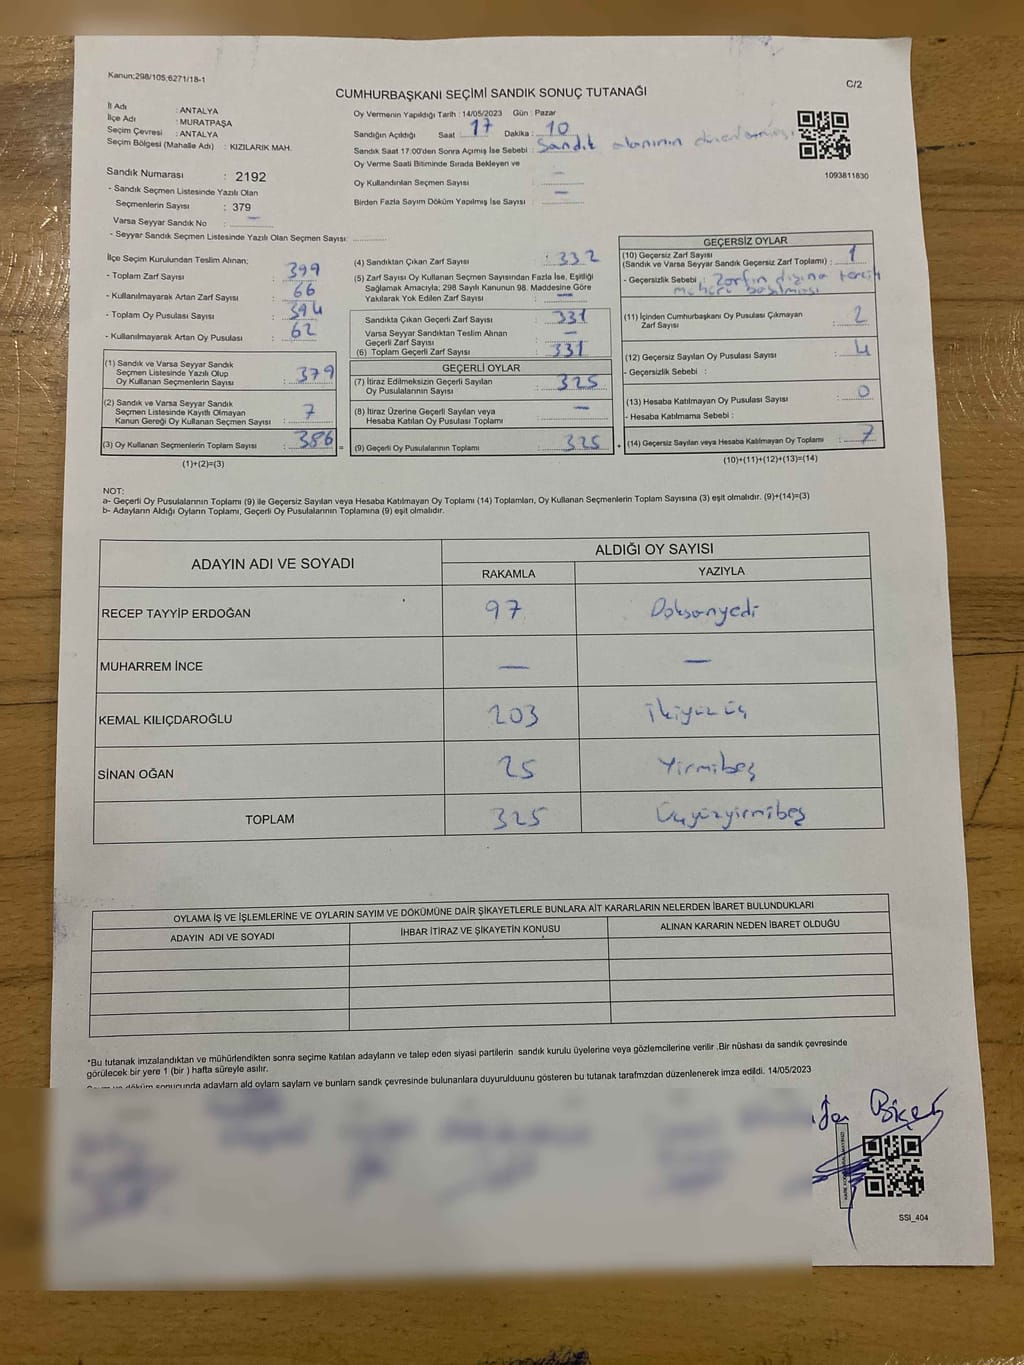 Kanun;298/105;6271/18-1
C/2
CUMHURBAŞKANI SEÇİMİ SANDIK SONUÇ TUTANAĞI
İl Adı : ANTALYA
İlçe Adı : MURATPAŞA
Seçim Çevresi : ANTALYA
Seçim Bölgesi (Mahalle Adı) : KIZILARIK MAH.
Oy Vermenin Yapıldığı Tarih : 14/05/2023 Gün : Pazar
Sandığın Açıldığı Saat : 17 Dakika : 10
Sandık Saat 17:00'den Sonra Açılmış İse Sebebi : Sandık alanının düzenlenmesi
Oy Verme Saati Bitiminde Sırada Bekleyen ve
Oy Kullandırılan Seçmen Sayısı : —
Birden Fazla Sayım Döküm Yapılmış İse Sayısı : —
1093811830
Sandık Numarası : 2192
- Sandık Seçmen Listesinde Yazılı Olan
Seçmenlerin Sayısı : 379
Varsa Seyyar Sandık No : —
- Seyyar Sandık Seçmen Listesinde Yazılı Olan Seçmen Sayısı: ............
İlçe Seçim Kurulundan Teslim Alınan;
- Toplam Zarf Sayısı : 399
- Kullanılmayarak Artan Zarf Sayısı : 66
- Toplam Oy Pusulası Sayısı : 394
- Kullanılmayarak Artan Oy Pusulası : 62
(1) Sandık ve Varsa Seyyar Sandık
Seçmen Listesinde Yazılı Olup
Oy Kullanan Seçmenlerin Sayısı : 379
(2) Sandık ve Varsa Seyyar Sandık
Seçmen Listesinde Kayıtlı Olmayan
Kanun Gereği Oy Kullanan Seçmen Sayısı : 7
(3) Oy Kullanan Seçmenlerin Toplam Sayısı : 386 =
(1)+(2)=(3)
(4) Sandıktan Çıkan Zarf Sayısı : 332
(5) Zarf Sayısı Oy Kullanan Seçmen Sayısından Fazla İse, Eşitliği
Sağlamak Amacıyla; 298 Sayılı Kanunun 98. Maddesine Göre
Yakılarak Yok Edilen Zarf Sayısı : —
Sandıkta Çıkan Geçerli Zarf Sayısı : 331
Varsa Seyyar Sandıktan Teslim Alınan
Geçerli Zarf Sayısı : —
(6) Toplam Geçerli Zarf Sayısı : 331
GEÇERLİ OYLAR
(7) İtiraz Edilmeksizin Geçerli Sayılan
Oy Pusulalarının Sayısı : 325
(8) İtiraz Üzerine Geçerli Sayılan veya
Hesaba Katılan Oy Pusulaları Toplamı : —
(9) Geçerli Oy Pusulalarının Toplamı : 325 +
GEÇERSİZ OYLAR
(10) Geçersiz Zarf Sayısı
(Sandık ve Varsa Seyyar Sandık Geçersiz Zarf Toplamı) : 1
- Geçersizlik Sebebi : Zarfın dışına tercih
mührü basılması
(11) İçinden Cumhurbaşkanı Oy Pusulası Çıkmayan
Zarf Sayısı : 2
(12) Geçersiz Sayılan Oy Pusulası Sayısı : 4
- Geçersizlik Sebebi :
(13) Hesaba Katılmayan Oy Pusulası Sayısı : 0
- Hesaba Katılmama Sebebi :
(14) Geçersiz Sayılan veya Hesaba Katılmayan Oy Toplamı : 7
(10)+(11)+(12)+(13)=(14)
NOT:
a- Geçerli Oy Pusulalarının Toplamı (9) ile Geçersiz Sayılan veya Hesaba Katılmayan Oy Toplamı (14) Toplamları, Oy Kullanan Seçmenlerin Toplam Sayısına (3) eşit olmalıdır. (9)+(14)=(3)
b- Adayların Aldığı Oyların Toplamı, Geçerli Oy Pusulalarının Toplamına (9) eşit olmalıdır.
ADAYIN ADI VE SOYADI
ALDIĞI OY SAYISI
RAKAMLA YAZIYLA
RECEP TAYYİP ERDOĞAN 97 Doksanyedi
MUHARREM İNCE — —
KEMAL KILIÇDAROĞLU 203 İkiyüzüç
SİNAN OĞAN 25 Yirmibeş
TOPLAM 325 Üçyüzyirmibeş
OYLAMA İŞ VE İŞLEMLERİNE VE OYLARIN SAYIM VE DÖKÜMÜNE DAİR ŞİKAYETLERLE BUNLARA AİT KARARLARIN NELERDEN İBARET BULUNDUKLARI
ADAYIN ADI VE SOYADI İHBAR İTİRAZ VE ŞİKAYETİN KONUSU ALINAN KARARIN NEDEN İBARET OLDUĞU
*Bu tutanak imzalandıktan ve mühürlendikten sonra seçime katılan adayların ve talep eden siyasi partilerin sandık kurulu üyelerine veya gözlemcilerine verilir .Bir nüshası da sandık çevresinde
görülecek bir yere 1 (bir ) hafta süreyle asılır.
sonucunda adayların ald oyların sayların ve bunların sandk çevresinde bulunanlara duyurulduunu gösteren bu tutanak tarafmzdan düzenlenerek imza edildi. 14/05/2023
SSI_404